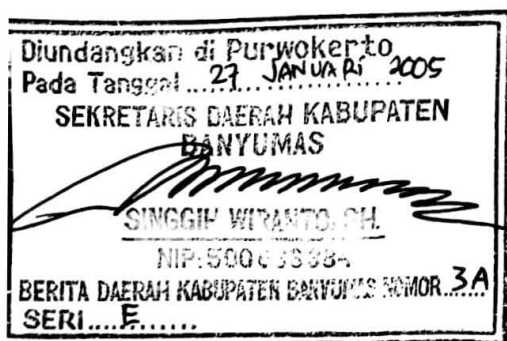 Diundangkan di Purwokerto
Pada Tanggal ... 27 JANUARI 2005
SEKRETARIS DAERAH KABUPATEN
BANYUMAS
SINGGIH WIRANTO, SH.
NIP.
BERITA DAERAH KABUPATEN BANYUMAS NOMOR 3A
SERI .... E .......